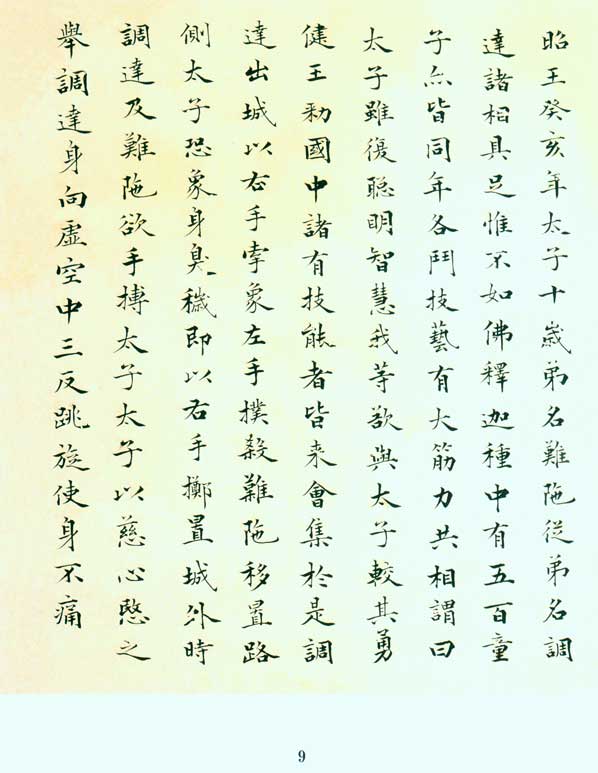 昭王癸亥年太子十歲弟名難陁從弟名調
達諸相具足惟不如佛釋迦種中有五百童
子亦皆同年各鬥技藝有大筋力共相謂曰
太子雖復聰明智慧我等欲與太子較其勇
健王勑國中諸有技能者皆来會集於是調
達出城以右手牽象左手撲殺難陁移置路
側太子恐象身臭穢即以右手擲置城外時
調達及難陁欲手搏太子太子以慈心愍之
舉調達身向虛空中三反跳旋使身不痛
9